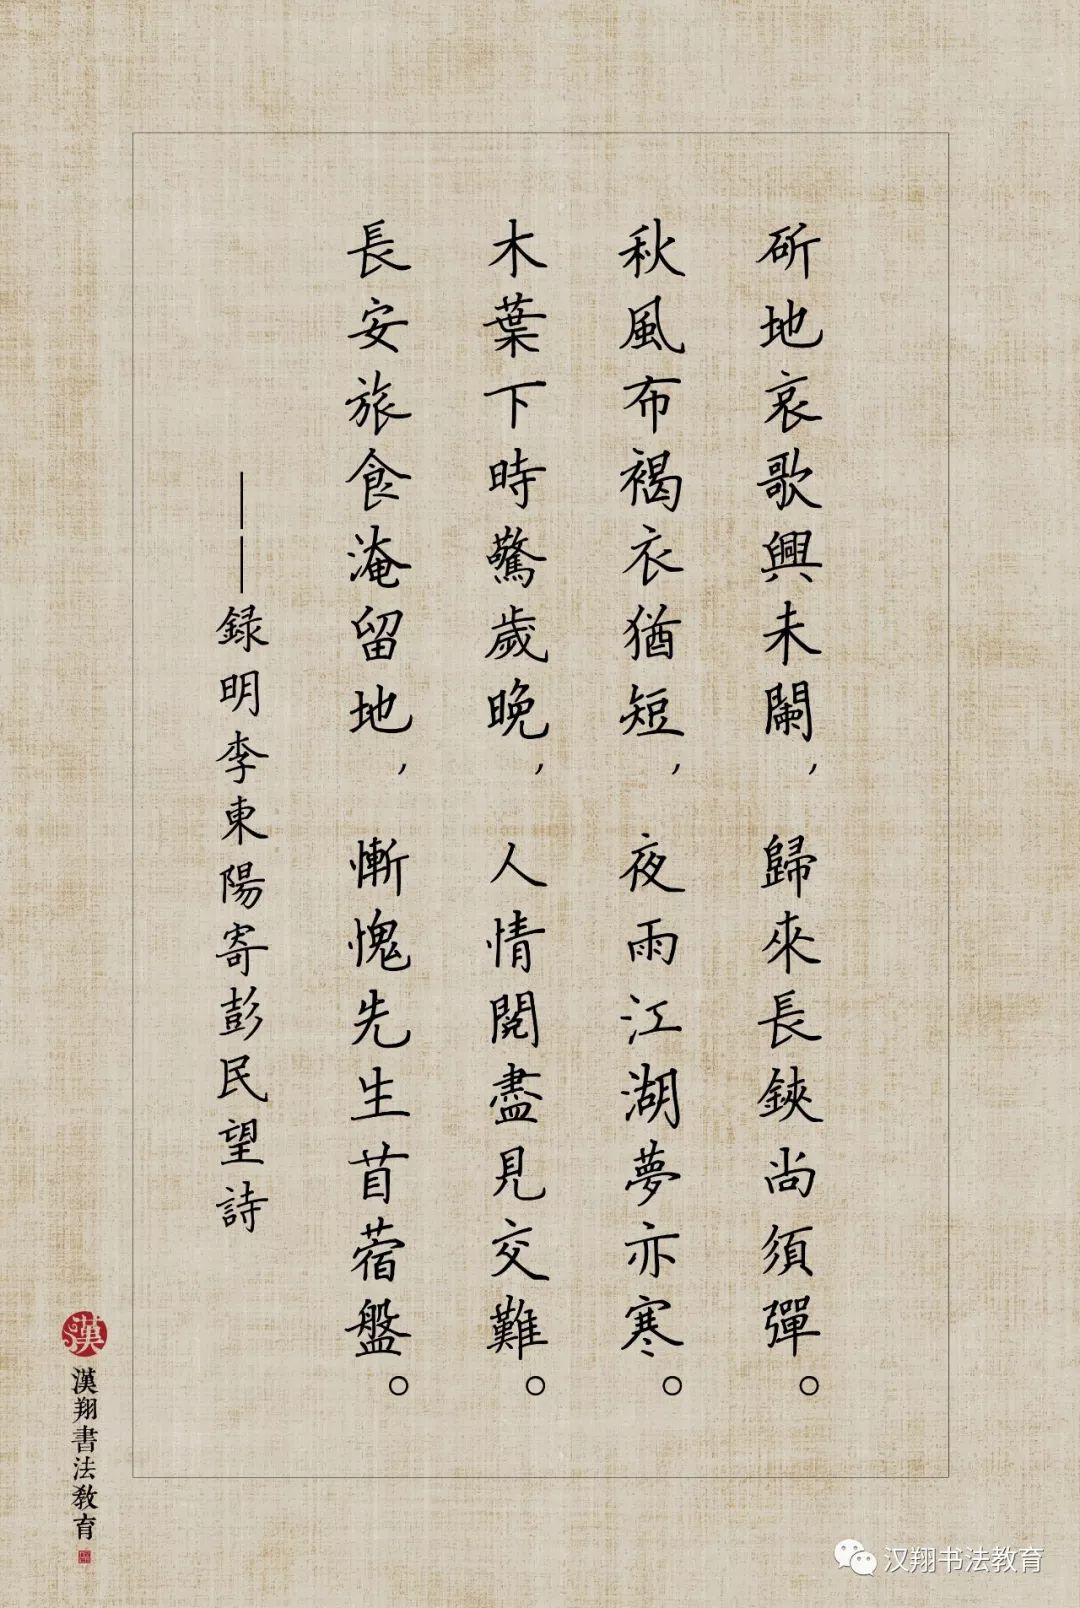 斫地哀歌興未闌，歸來長鋏尚須彈。
秋風布褐衣猶短，夜雨江湖夢亦寒。
木葉下時驚歲晚，人情閱盡見交難。
長安旅食淹留地，慚愧先生苜蓿盤。
——録明李東陽寄彭民望詩
漢
漢翔書法教育
汉翔书法教育